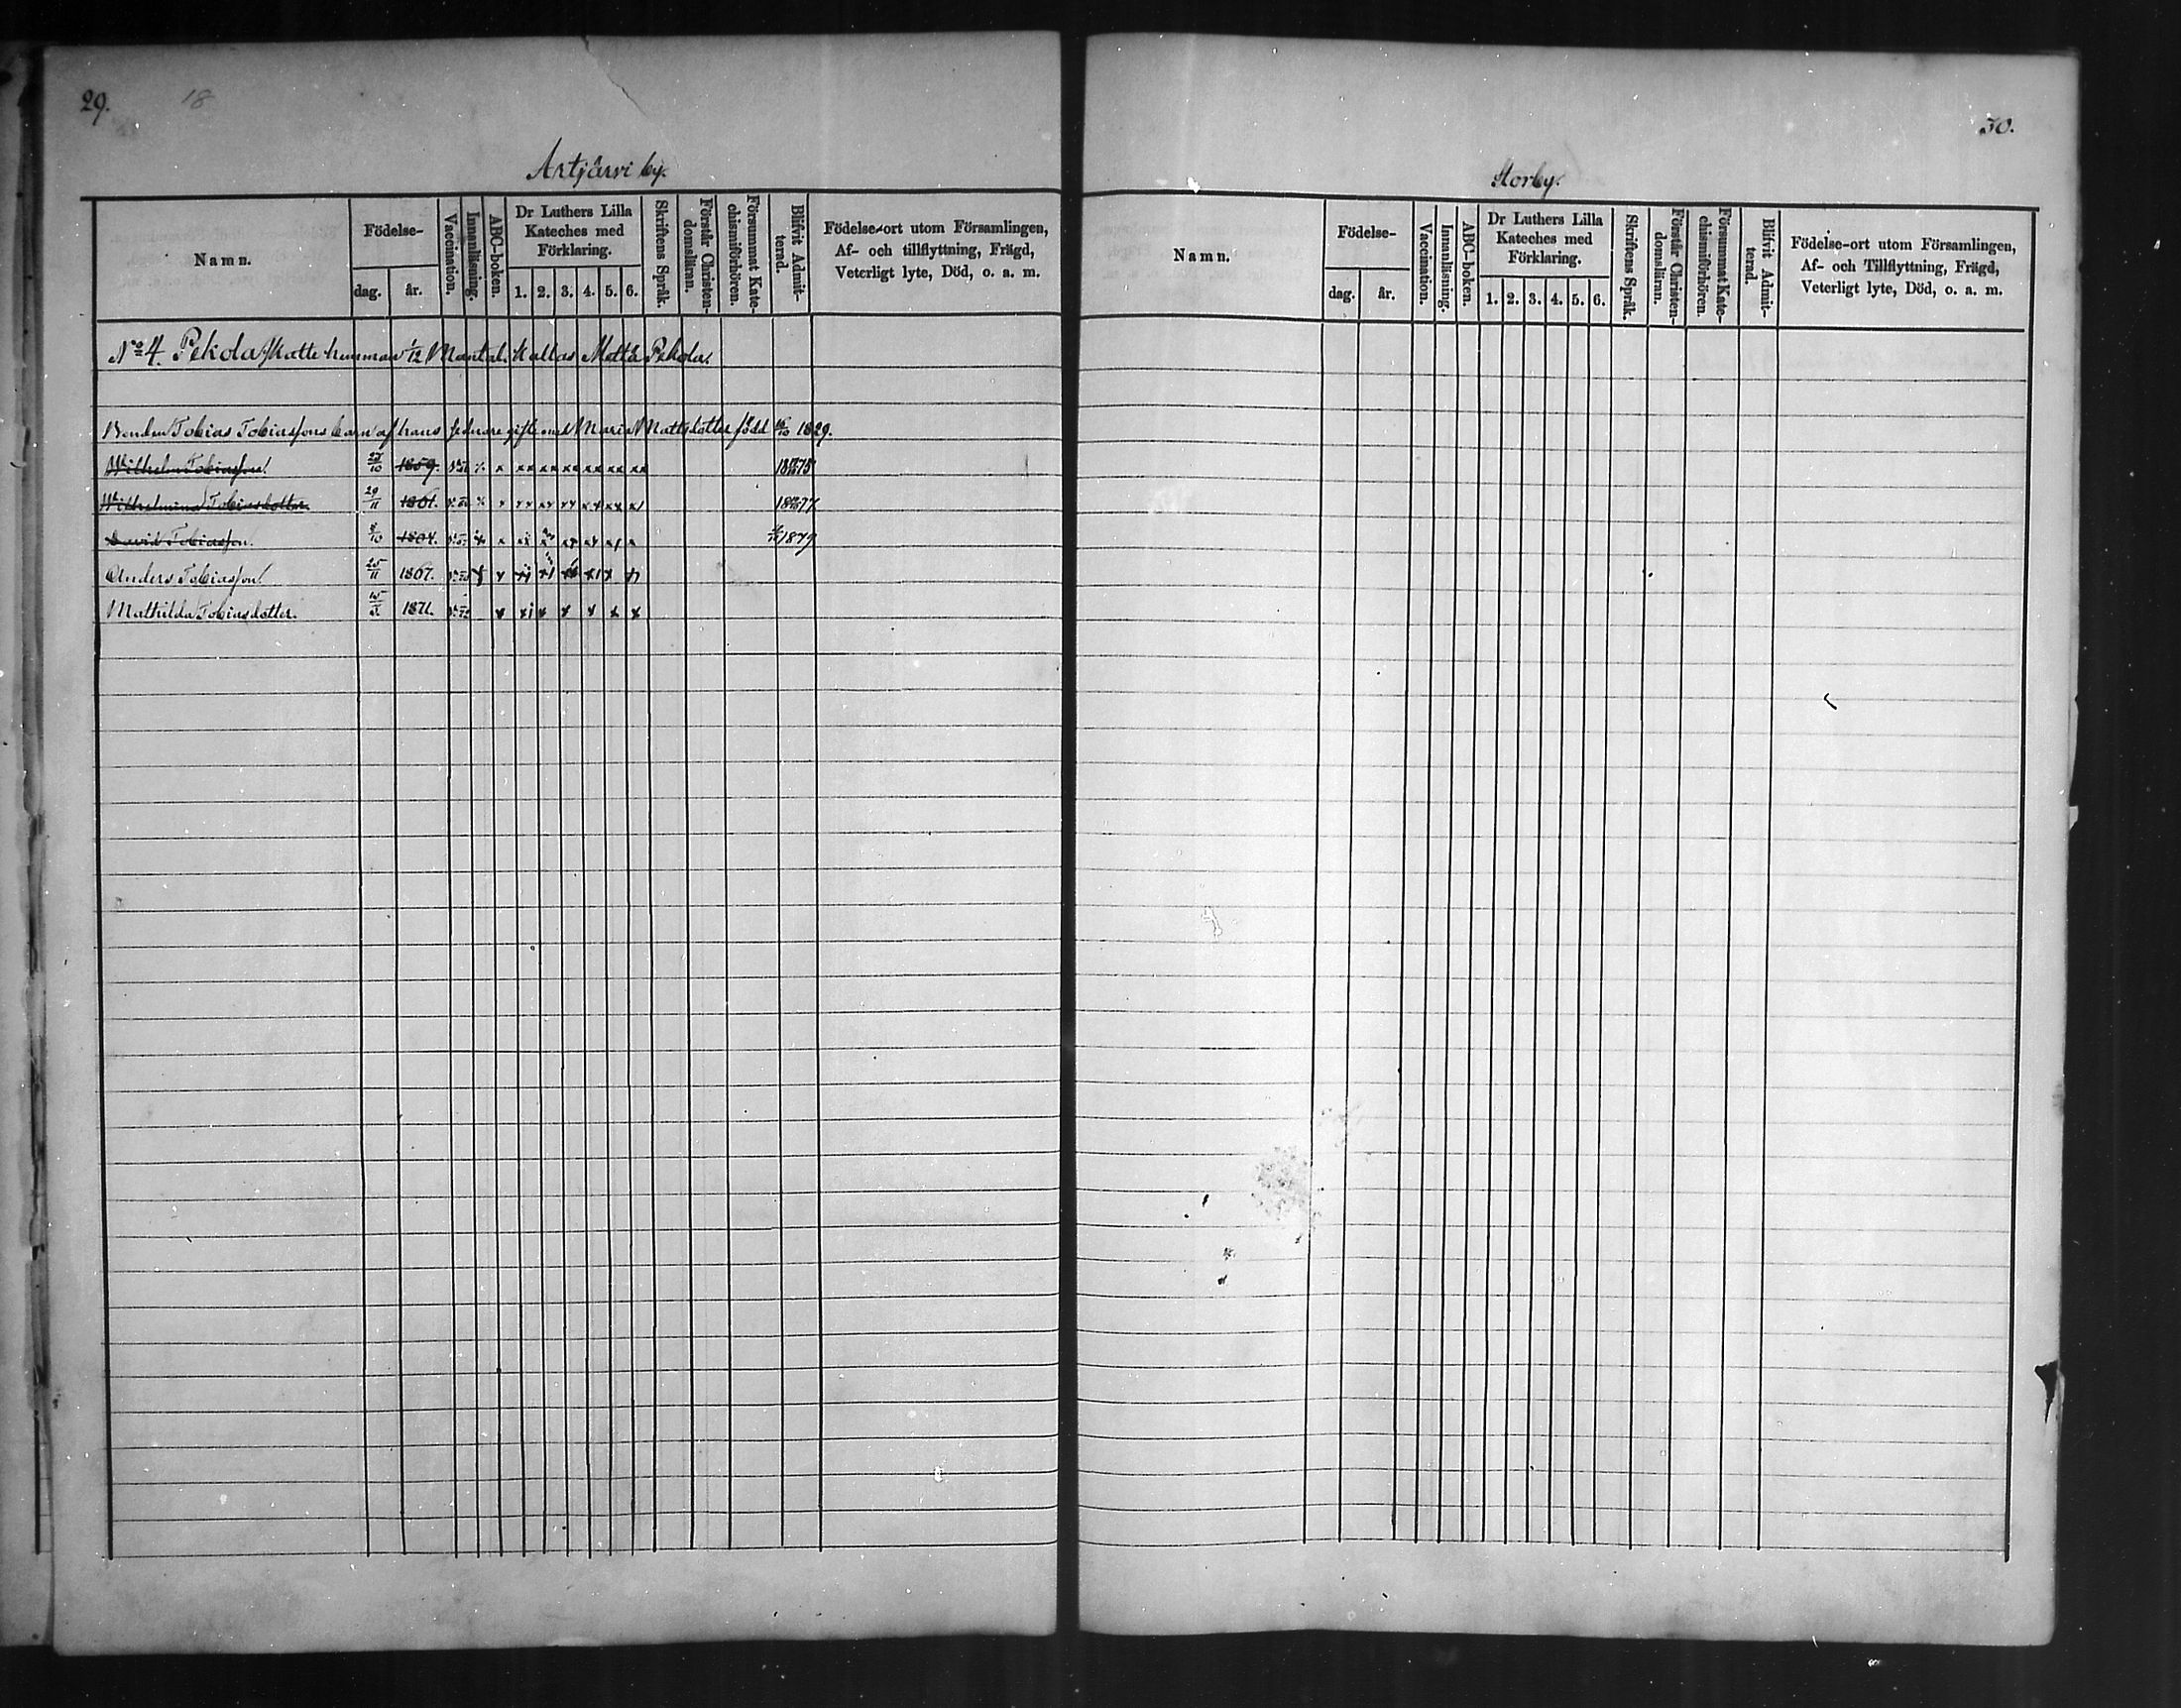 29. 18
Artjärvi by.
Namn. Födelse- dag. år. Vaccination. Innanläsning. ABC-boken. Dr Luthers Lilla Kateches med Förklaring. 1. 2. 3. 4. 5. 6. Skriftens Språk. Förstår Christen-domsläran. Försummat Kate-chismiförhören. Blifvit Admit-terad. Födelse-ort utom Församlingen, Af- och tillflyttning, Frägd, Veterligt lyte, Död, o. a. m.
No 4. Pekola Skatte hemman 1/12 Mantal. Kallas Matti Pekola.
Bonden Tobias Tobiassons barn af hans sednare gifte med Maria Mattsdotter född 1829.
Wilhelm Tobiasson 27/10 1859. x xx xx xx xx xx xx 1875
Wilhelmina Tobiasdotter 29/11 1861. 1877
David Tobiasson. 1864. 1879
Anders Tobiasson 25/11 1867.
Mathilda Tobiasdotter. 1871.
30.
Storby.
Namn. Födelse- dag. år. Vaccination. Innanläsning. ABC-boken. Dr Luthers Lilla Kateches med Förklaring. 1. 2. 3. 4. 5. 6. Skriftens Språk. Förstår Christen-domsläran. Försummat Kate-chismiförhören. Blifvit Admit-terad. Födelse-ort utom Församlingen, Af- och Tillflyttning, Frägd, Veterligt lyte, Död, o. a. m.